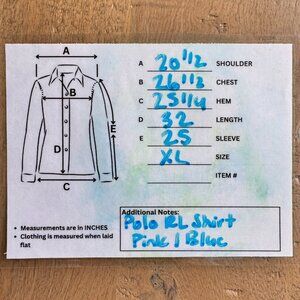 A
B
C
D
E
A 20 1/2 SHOULDER
B 26 1/2 CHEST
C 25 1/4 HEM
D 32 LENGTH
E 25 SLEEVE
XL SIZE
ITEM #
• Measurements are in INCHES
• Clothing is measured when laid flat
Additional Notes:
Polo RL Shirt
Pink / Blue